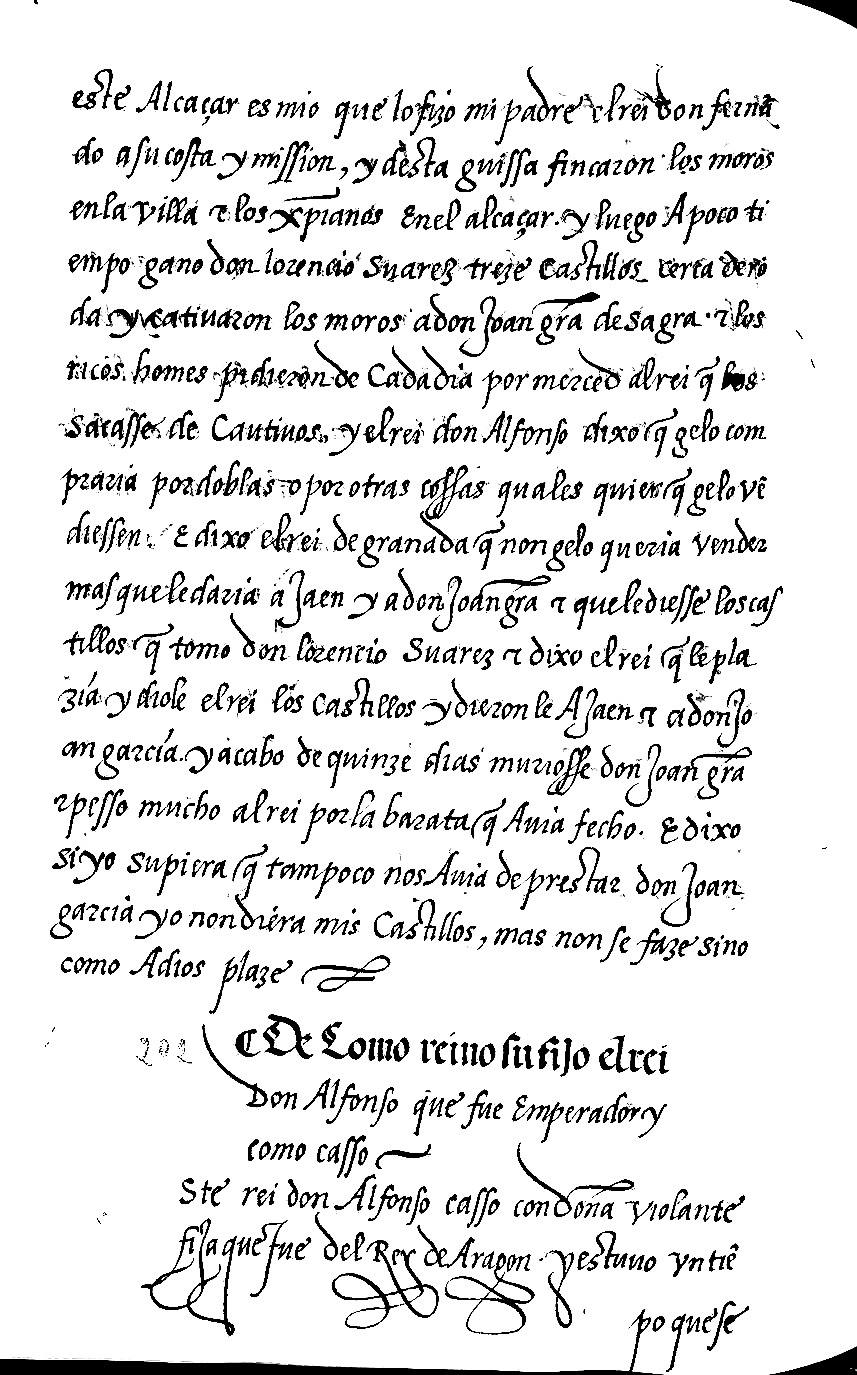 este Alcaçar es mio que lo fizo mi padre el rei don fernã
do a su costa y mission, y desta guissa fincaron los moros
en la villa τ los xp̄ianos En el alcaçar. y luego A poco ti
empo gano don lorencio Suarez treze Castillos cerca de rō
da y cativaron los moros a don Joan gr̃a de sagra · τ los
ricos homes pidieron de Cada dia por merced al rei q̃ los
sacasse de Cautivos. y el rei don Alfonso dixo q̃ gelo com
praria por doblas o por otras cossas quales quier q̃ gelo vẽ
diessen. E dixo el rei de granada q̃ non gelo queria vender
mas que le daria a Jaen y a don Joan gr̃a τ que le diesse los cas
tillos q̃ tomo don lorencio Suarez τ dixo el rei q̃ le pla
zía y diole el rei los Castillos y dieron le A Jaen τ a don Jo
an garcía. y a cabo de quinze dias muriosse don Joan gr̃a
τ pesso mucho al rei por la barata q̃ Avia fecho. E dixo
si yo supiera q̃ tam poco nos Avia de prestar don Joan
garcia yo non diera mis Castillos, mas non se faze sino
como A dios plaze
202 De Como reino su fijo el rei
Don Alfonso que fue Emperador y
como casso
Ste rei don Alfonso casso con doña violante
fija que fue del Rey de Aragon y estuvo yn tiẽ
po que se